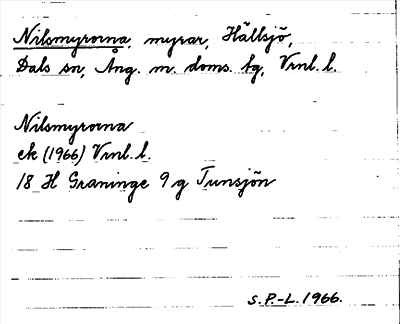 Nilsmyrorna, myrar, Hällsjö,
Dals sn, Ång. m. doms. hg, Vrnl. l.
Nilsmyrorna
ek (1966) Vrnl. l.
18 H Graninge 9 g Tunsjön
S. P.-L. 1966.